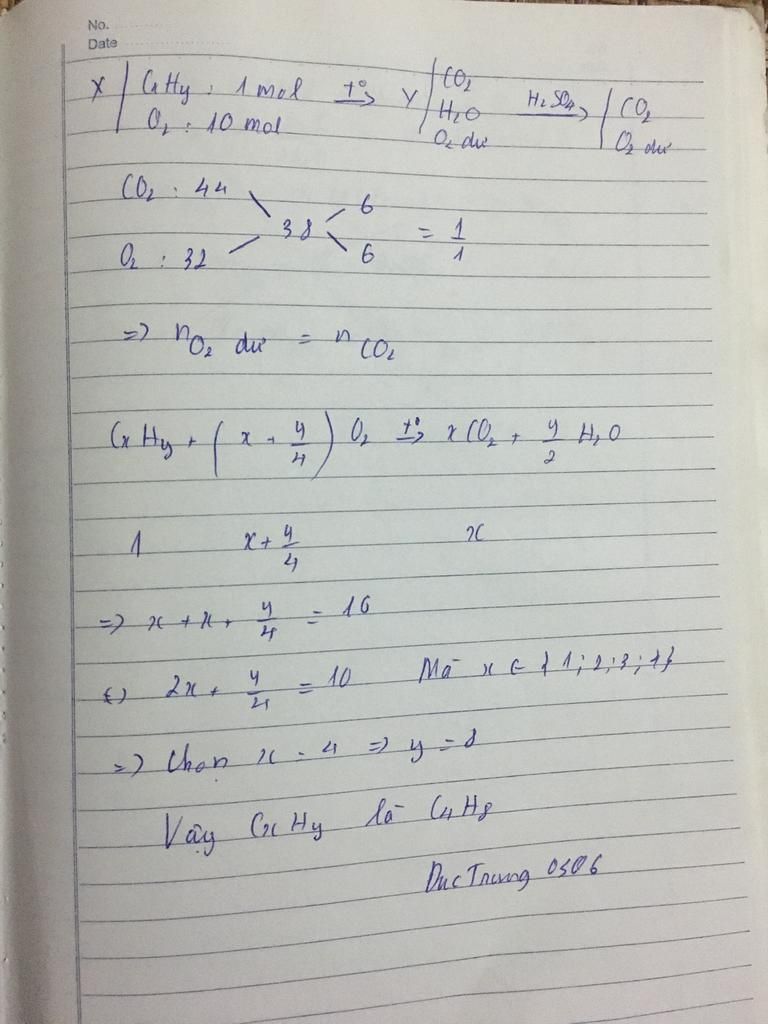 No.
Date
X | CxHy : 1 mol →t° Y | CO2 H2O O2 dư →H2SO4 | CO2 O2 dư
O2 : 10 mol
CO2 : 44 6
38 = 1/1
O2 : 32 6
=> nO2 dư = nCO2
CxHy + (x + y/4) O2 →t° xCO2 + y/2 H2O
1 x + y/4 x
=> x + x + y/4 = 10
<=> 2x + y/4 = 10 Mà x ∈ {1; 2; 3; 4}
=> Chọn x = 4 => y = 8
Vậy CxHy là C4H8
DucTrung 0306